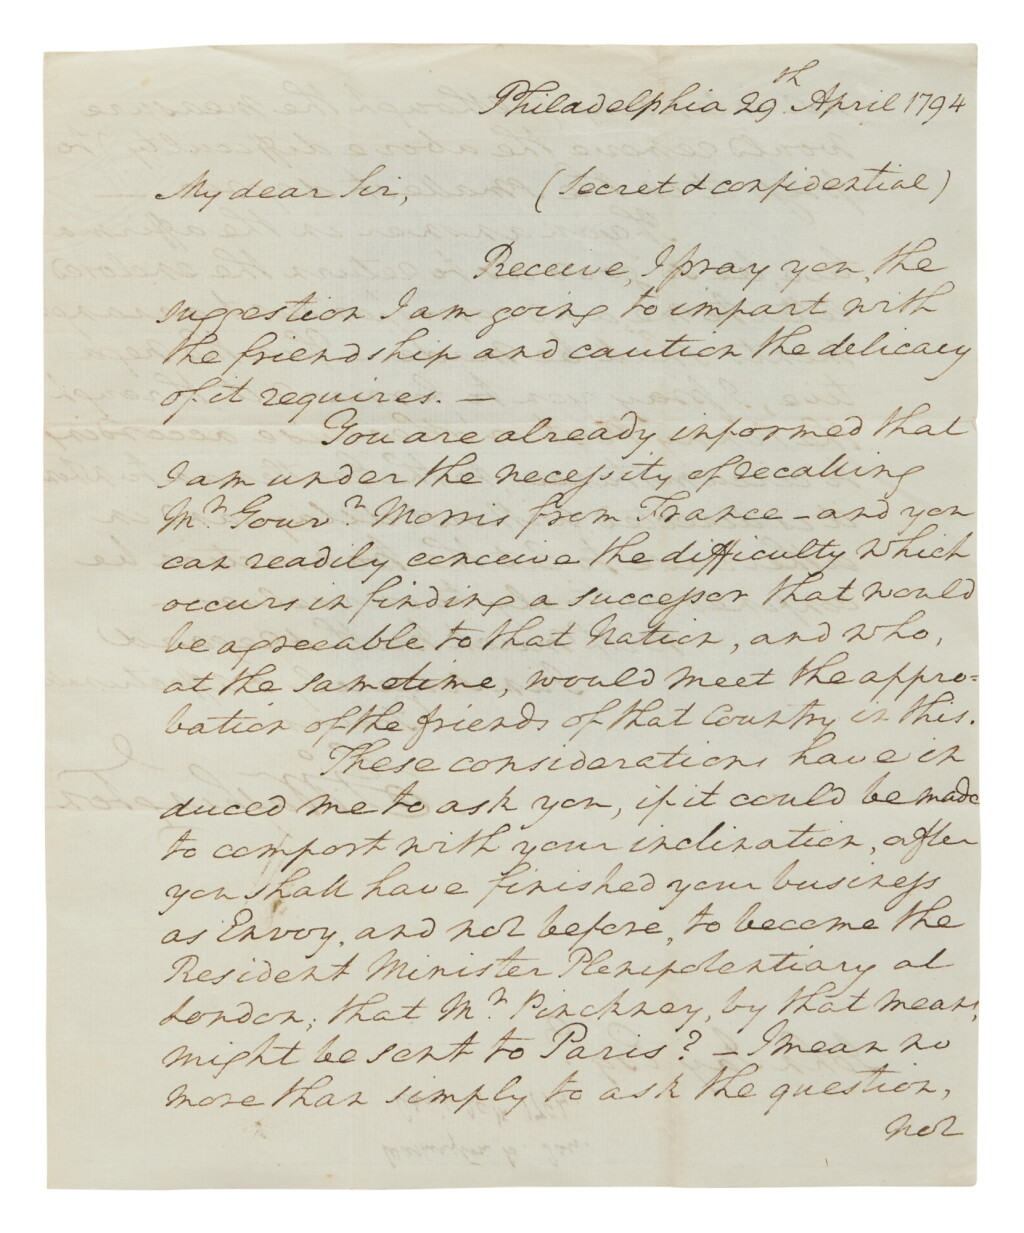 Philadelphia 29th April 1794
My dear Sir, (Secret & confidential)
Receive, I pray you, the
suggestion I am going to impart with
the friendship and caution the delicacy
of it requires. —
You are already informed that
I am under the necessity of recalling
Mr. Gouvr. Morris from France — and you
can readily conceive the difficulty which
occurs in finding a successor that would
be agreeable to that Nation, and who,
at the sametime, would meet the appro=
bation of the friends of that Country in this.
These considerations have in
duced me to ask you, if it could be made
to comport with your inclination, after
you shall have finished your business
as Envoy, and not before, to become the
Resident Minister Plenipotentiary at
London; that Mr. Pinckney, by that means,
might be sent to Paris? — I mean no
more than simply to ask the question,
not